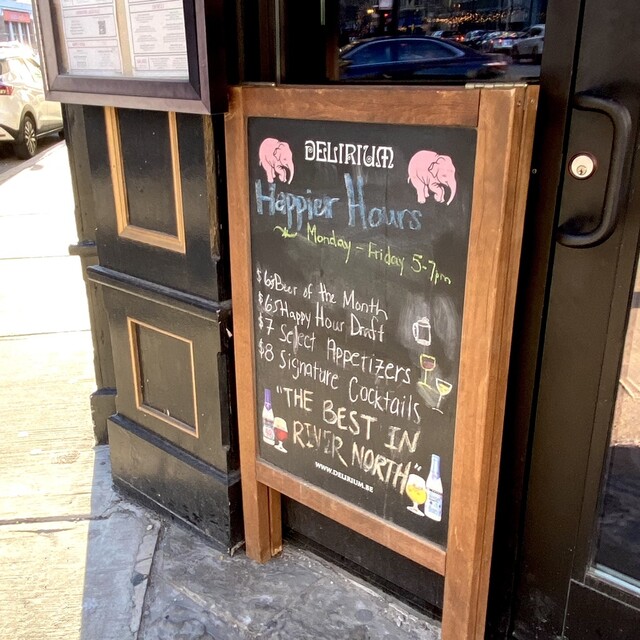 DELIRIUM
Happier Hours
Monday - Friday 5-7pm
Beer of the Month
Happy Hour Draft
$7 Select Appetizers
$8 Signature Cocktails
"THE BEST IN
RIVER NORTH"
WWW.DELIRIUM.BE